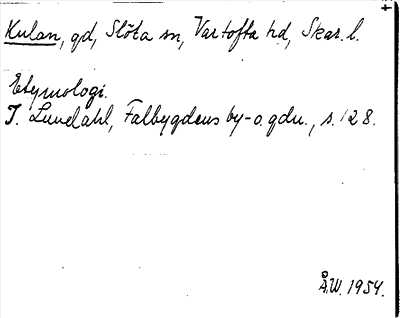 Kulan, gd, Slöta sn, Vartofta hd, Skar. l.
Etymologi.
I. Lundahl, Falbygdens by- o. gdn., s. 128.
Å.W. 1954.